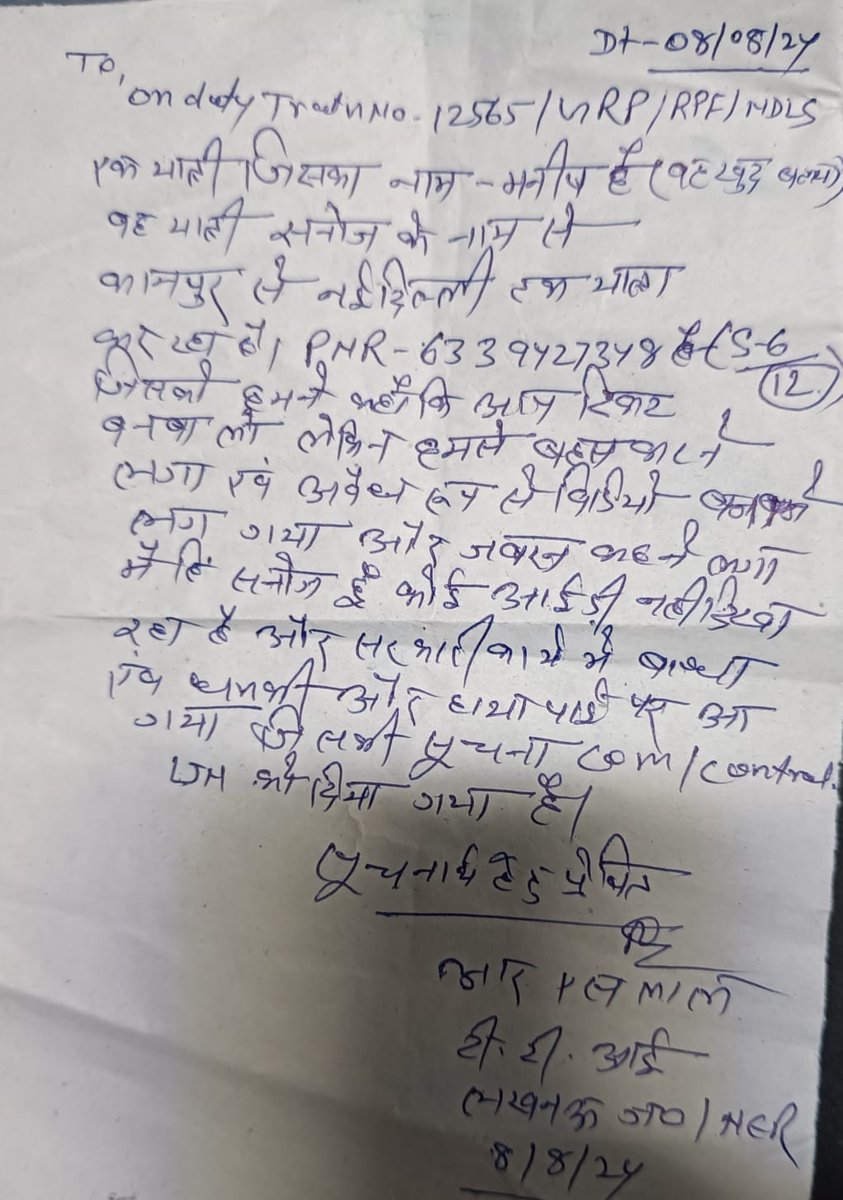 Dt-08/08/24
To,
on duty Train No. 12565/GRP/RPF/NDLS
एक यात्री जिसका नाम - मनीष है (वह खुद बताया)
वह यात्री सनोज के नाम से
कानपुर से नई दिल्ली तक यात्रा
कर रहा है। PNR-6339427348 है (S-6
12)
जिसको हमने कहाँ कि आप टिकट
बनवा लो लेकिन हमसे बहस करने
लगा एवं अवैध रूप से विडियो बनाने
लग गया और जबरन कहने लगा
मै हि सनोज हूँ कोई आईडी नही दिखा
रहा है और सरकारी कार्य मे बाधा
एवं धमकी और हाथा पाई पर आ
गया जिसकी सूचना Com/Control.
LJN को दिया गया है।
सूचनार्थ हेतु प्रेषित
आर एस लाल
टी. टी. आई
लखनऊ जं०/NER
8/8/24